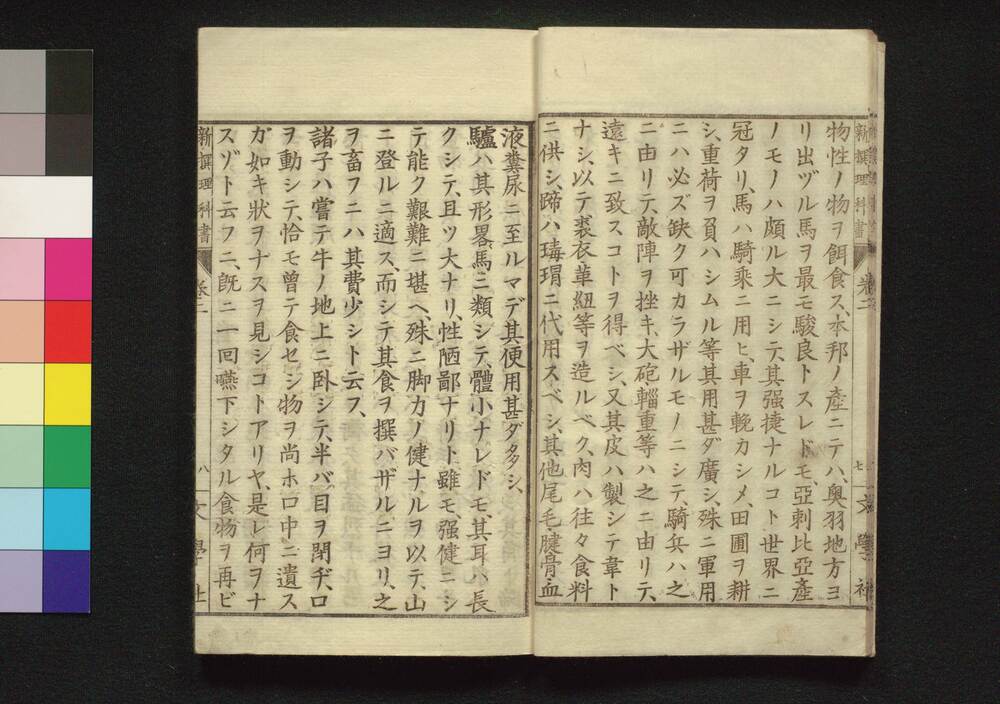 新撰理科書
卷二
七
文學社
物性ノ物ヲ餌食ス、本邦ノ產ニテハ、奥羽地方ヨ
リ出ヅル馬ヲ最モ駿良トスレドモ、亞剌比亞產
ノモノハ頗ル大ニシテ、其强捷ナルコト世界ニ
冠タリ、馬ハ騎乘ニ用ヒ、車ヲ輓カシメ、田圃ヲ耕
シ、重荷ヲ負ハシムル等其用甚ダ廣シ、殊ニ軍用
ニハ必ズ缺ク可カラザルモノニシテ、騎兵ハ之
ニ由リテ、敵陣ヲ挫キ、大砲輜重等ハ之ニ由リテ、
遠キニ致スコトヲ得ベシ、又其皮ハ製シテ韋ト
ナシ、以テ裘衣、革紐等ヲ造ルベク、肉ハ往々食料
ニ供シ、蹄ハ瑇瑁ニ代用スベシ、其他尾毛、腱骨、血
液糞尿ニ至ルマデ其便用甚ダ多シ、
驢ハ其形畧馬ニ類シテ、體小ナレドモ、其耳ハ長
クシテ、且ツ大ナリ、性陋鄙ナリト雖モ、强健ニシ
テ能ク艱難ニ堪ヘ、殊ニ脚力ノ健ナルヲ以テ、山
ニ登ルニ適ス、而シテ其食ヲ撰バザルニヨリ、之
ヲ畜フニハ其費少シト云フ、
諸子ハ嘗テ牛ノ地上ニ卧シテ、半バ目ヲ閉ヂ、口
ヲ動シテ、恰モ曾テ食セシ物ヲ尚ホ口中ニ遺ス
ガ如キ狀ヲナスヲ見シコトアリヤ、是レ何ヲナ
スゾト云フニ、旣ニ一回嚥下シタル食物ヲ再ビ
新撰理科書
卷二
八
文學社